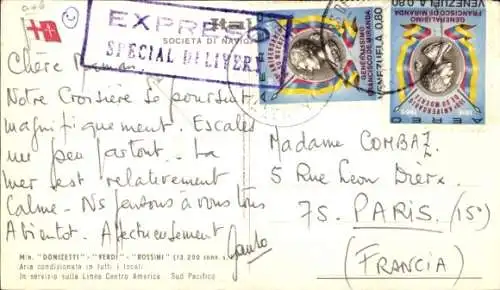 EXPRESO
SPECIAL DELIVERY
SOCIETÀ DI NAVIGA
AEREO
GENERALISIMO
FRANCISCO DE MIRANDA
VENEZUELA 0.80
GENERALISIMO
FRANCISCO DE MIRANDA
VENEZUELA 0.80
AEREO
Chère
Notre Croisière se poursuit
magnifiquement. Escales
un peu partout. La
mer est relativement
Calme - Ns pensons à vous tous
A bientot. Affectueusement
Madame COMBAZ
5 Rue Leon Dierx
75. PARIS (15°)
(FRANCIA)
M/n. "DONIZETTI" - "VERDI" - "ROSSINI" (13.200 tonn.)
Aria condizionata in tutti i locali
In servizio sulla Linea Centro America - Sud Pacifico